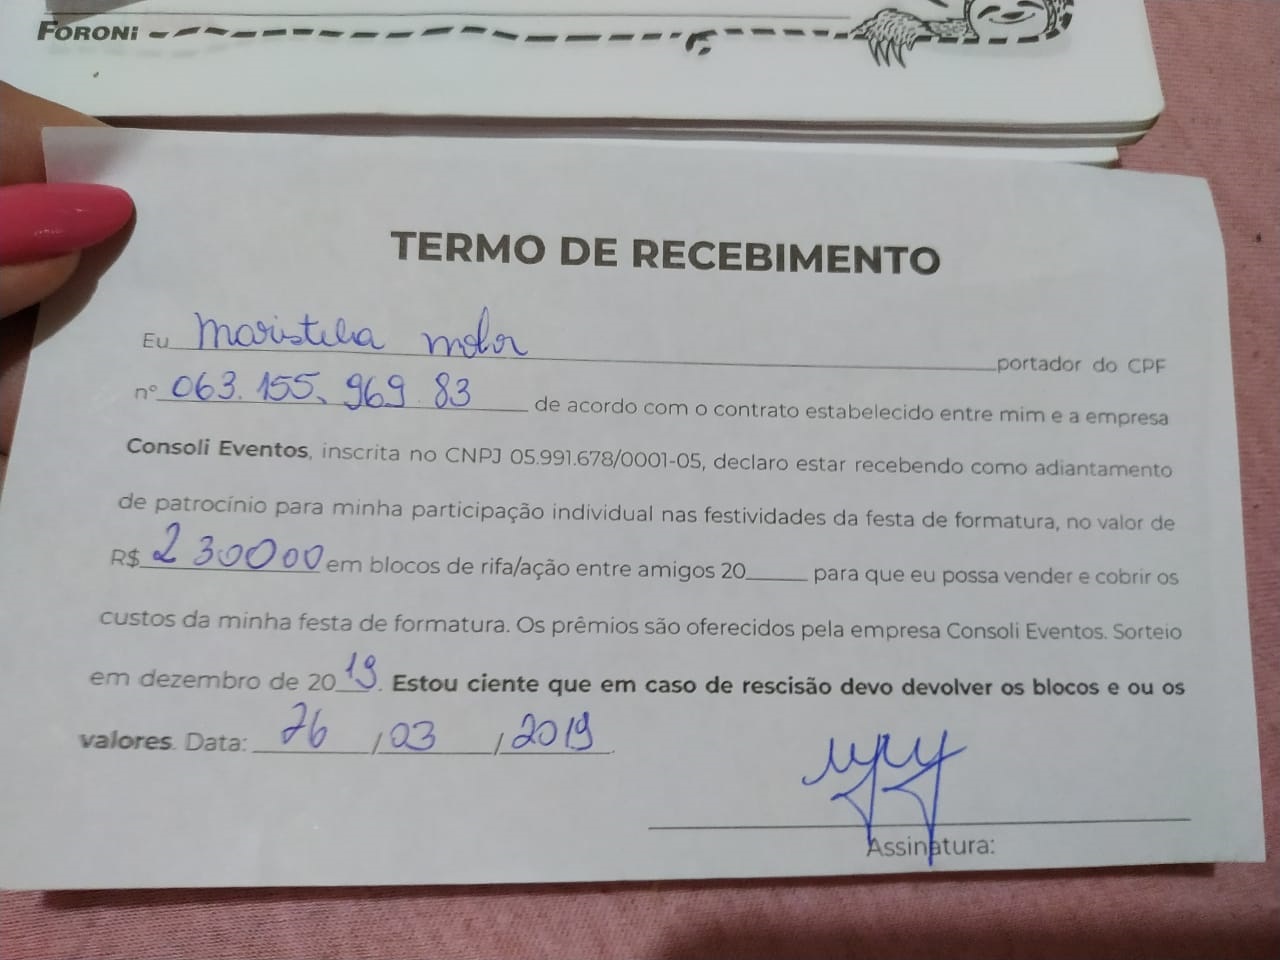 FORONI
TERMO DE RECEBIMENTO
Eu Maristela molor portador do CPF
nº 063.155.969 83 de acordo com o contrato estabelecido entre mim e a empresa
Consoli Eventos, inscrita no CNPJ 05.991.678/0001-05, declaro estar recebendo como adiantamento
de patrocínio para minha participação individual nas festividades da festa de formatura, no valor de
R$ 2 300 00 em blocos de rifa/ação entre amigos 20____ para que eu possa vender e cobrir os
custos da minha festa de formatura. Os prêmios são oferecidos pela empresa Consoli Eventos. Sorteio
em dezembro de 20 19. Estou ciente que em caso de rescisão devo devolver os blocos e ou os
valores. Data: 26 / 03 / 2019
Assinatura: